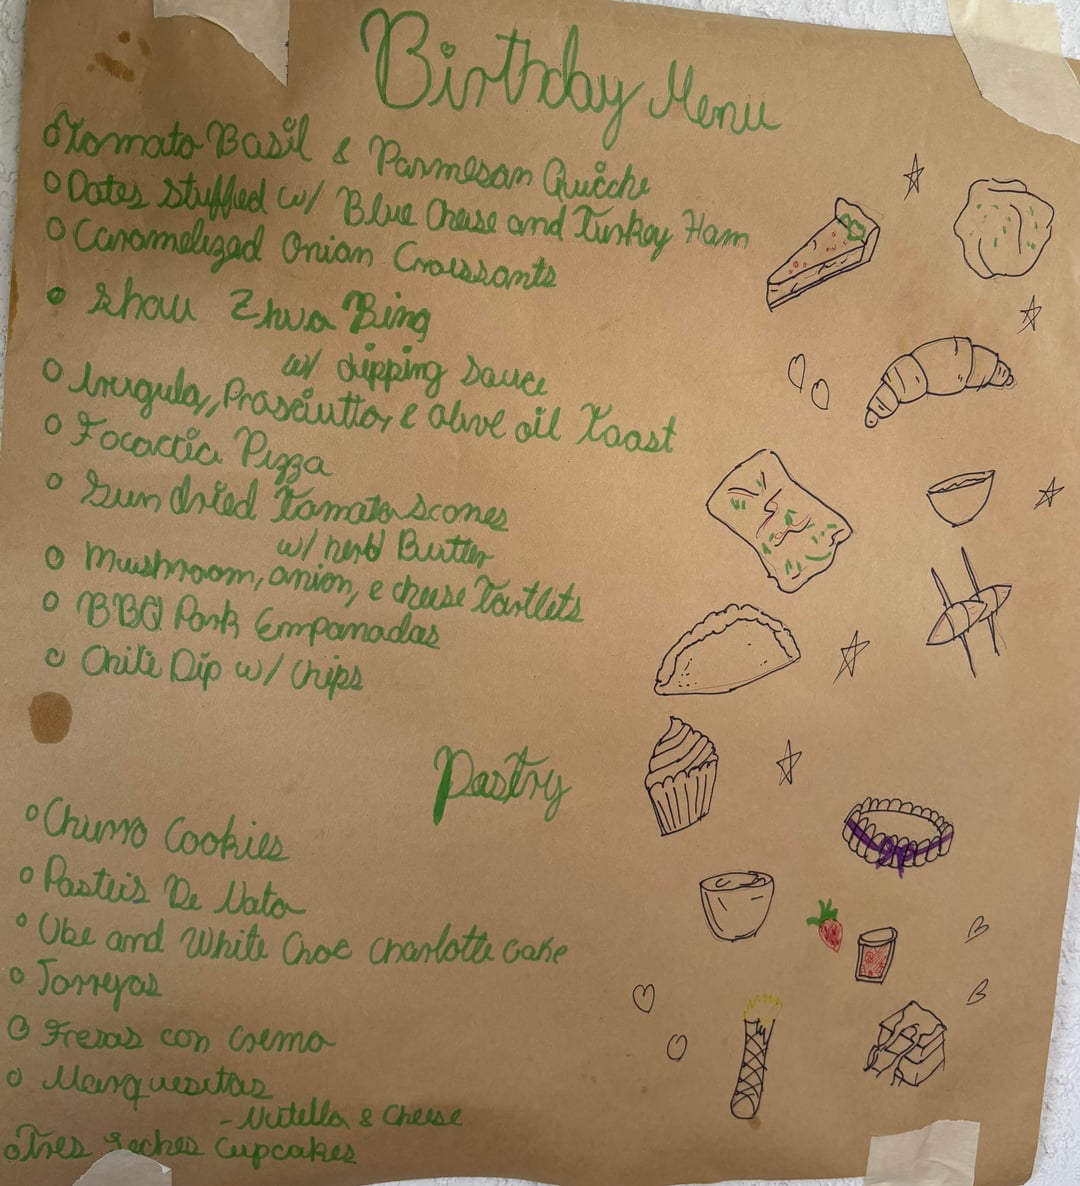 Birthday Menu
Tomato Basil & Parmesan Quicche
Dates Stuffed w/ Blue Cheese and Turkey Ham
Caramelized Onion Croissants
Shou Zhua Bing
w/ dipping Sauce
Arugula, Prosciutto, & olive oil Toast
Focaccia Pizza
Sun dried Tomato scones
w/ herb Butter
Mushroom, onion, & cheese Tartlets
BBQ Pork Empanadas
Chile Dip w/ Chips
Pastry
Churro Cookies
Pasteis De Nata
Ube and White Choc Charlotte Cake
Torrejas
Fresas con Crema
Marquesitas
- Nutella & Cheese
Tres Leches Cupcakes